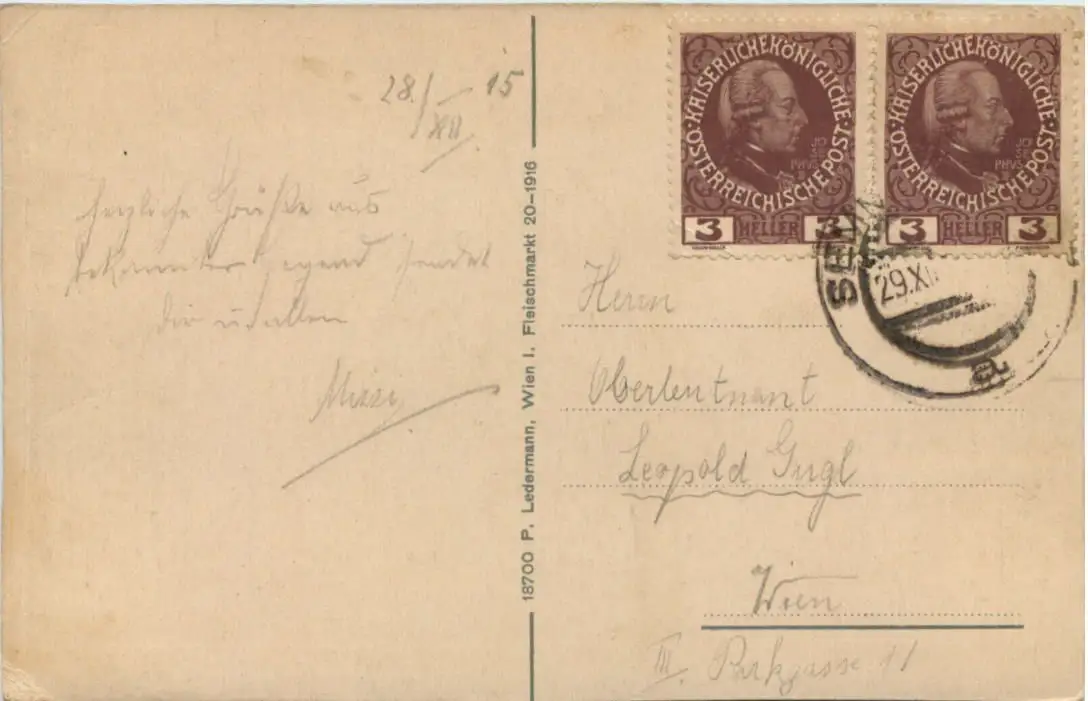 28./XII 15
Herzliche Grüße aus
bekannter Gegend sendet
Dir u. allen
Mizzi
18700 P. Ledermann, Wien I, Fleischmarkt 20-1916
KAISERLICHE KÖNIGLICHE ÖSTERREICHISCHE POST
JOSEPHUS
3 HELLER 3
KAISERLICHE KÖNIGLICHE ÖSTERREICHISCHE POST
JOSEPHUS
3 HELLER 3
29.XII
a
Herrn
Oberleutnant
Leopold Gugl
Wien
III. Parkgasse 11